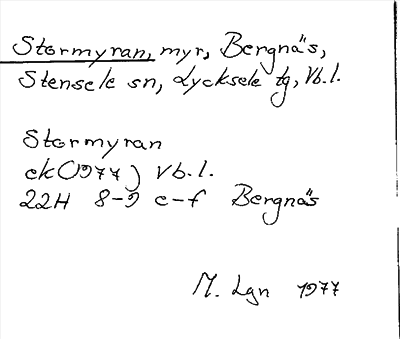 Stormyran, myr, Bergnäs,
Stensele sn, Lycksele tg, Vb.l.
Stormyran
ek (1977) Vb.l.
22H 8-9 e-f Bergnäs
M. Lgn 1977